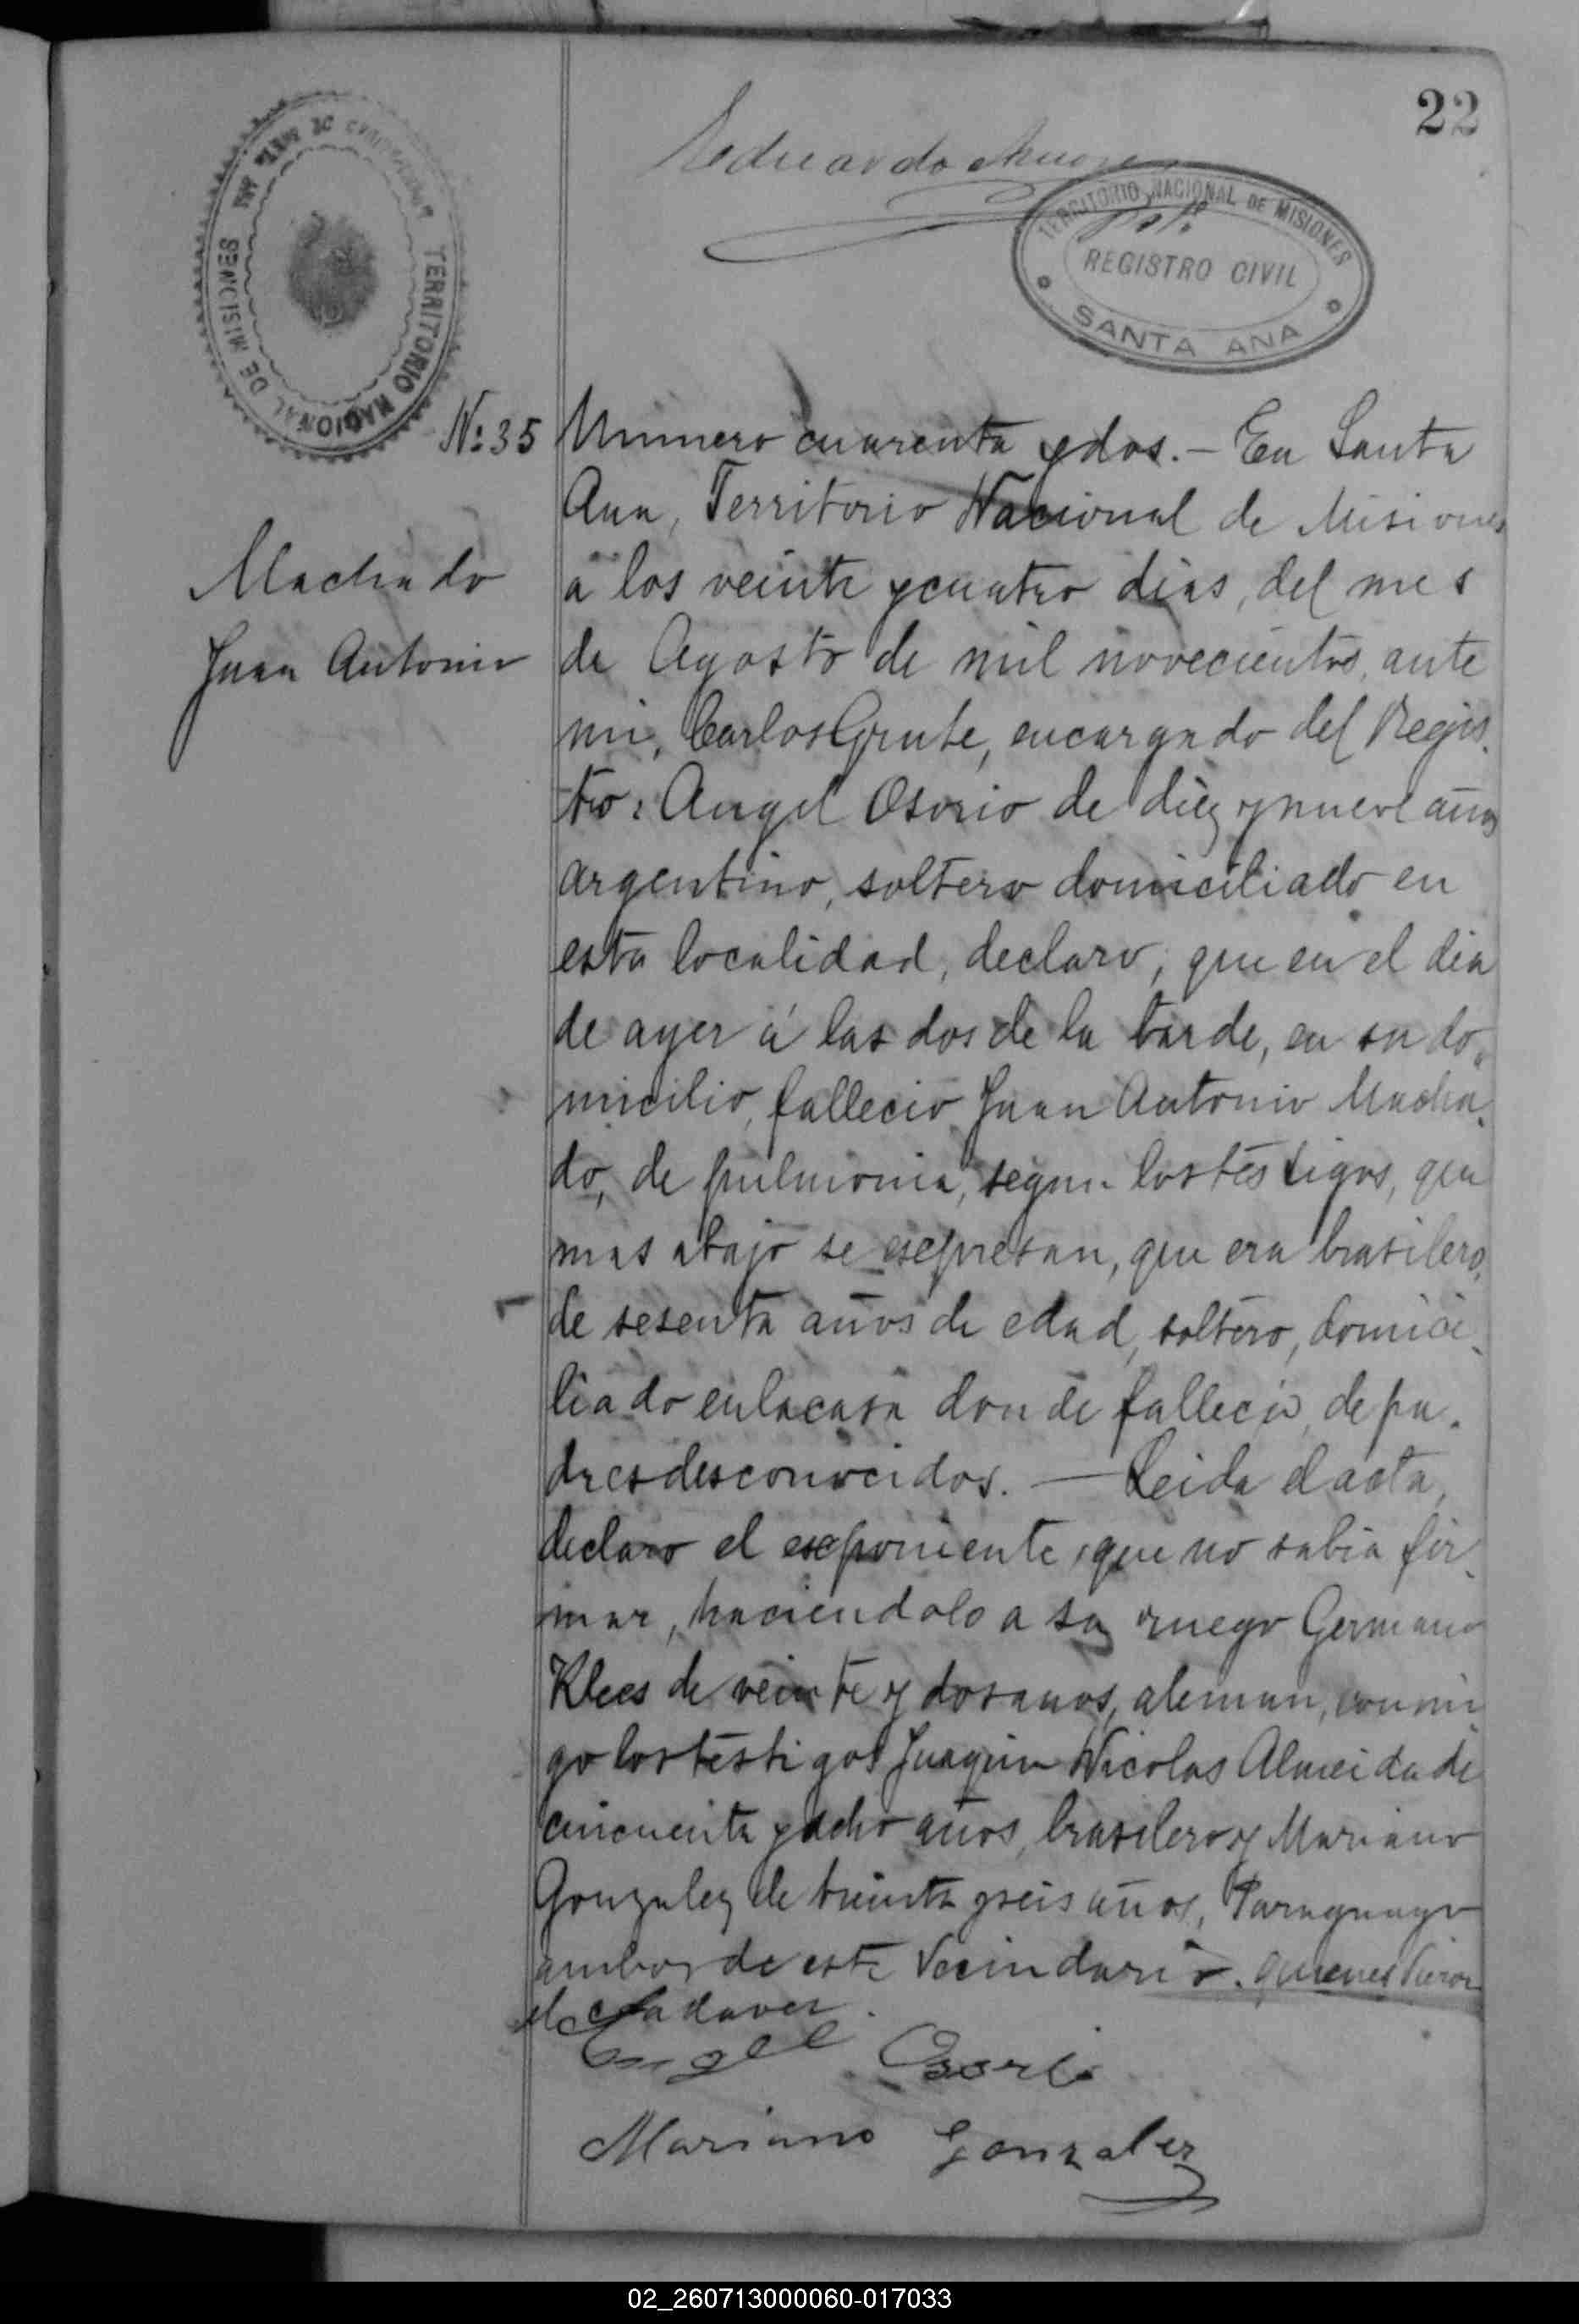 22
Eduardo
TERRITORIO NACIONAL DE MISIONES
REGISTRO CIVIL
SANTA ANA
TERRITORIO NACIONAL DE MISIONES
Nº 35
Machado
Juan Antonio
Numero cuarenta y dos. — En Santa
Ana, Territorio Nacional de Misiones
a los veinte y cuatro dias, del mes
de Agosto de mil novecientos, ante
mi, Carlos Grute, encargado del Regis-
tro: Angel Osorio de diez y nueve años
argentino, soltero domiciliado en
esta localidad, declaro, que en el dia
de ayer á las dos de la tarde, en su do-
micilio, fallecio Juan Antonio Macha-
do, de pulmonia, segun los testigos, que
mas abajo se escpresan, que era brasilero,
de sesenta años de edad, soltero, domici-
liado en la casa donde fallecio, de pa-
dres desconocidos. — Leida el acta,
declaro el escponiente, que no sabia fir-
mar, haciendolo a su ruego Germano
Klees de veinte y dos años, aleman, conmi
go los testigos Juaquin Nicolas Almeida de
cincuenta y ocho años, brasilero y Mariano
Gonzalez de treinta y seis años, Paraguayo
ambos de este Vecindario. quienes vieron
el cadaver.
Angel Osorio
Mariano Gonzalez
02_260713000060-017033